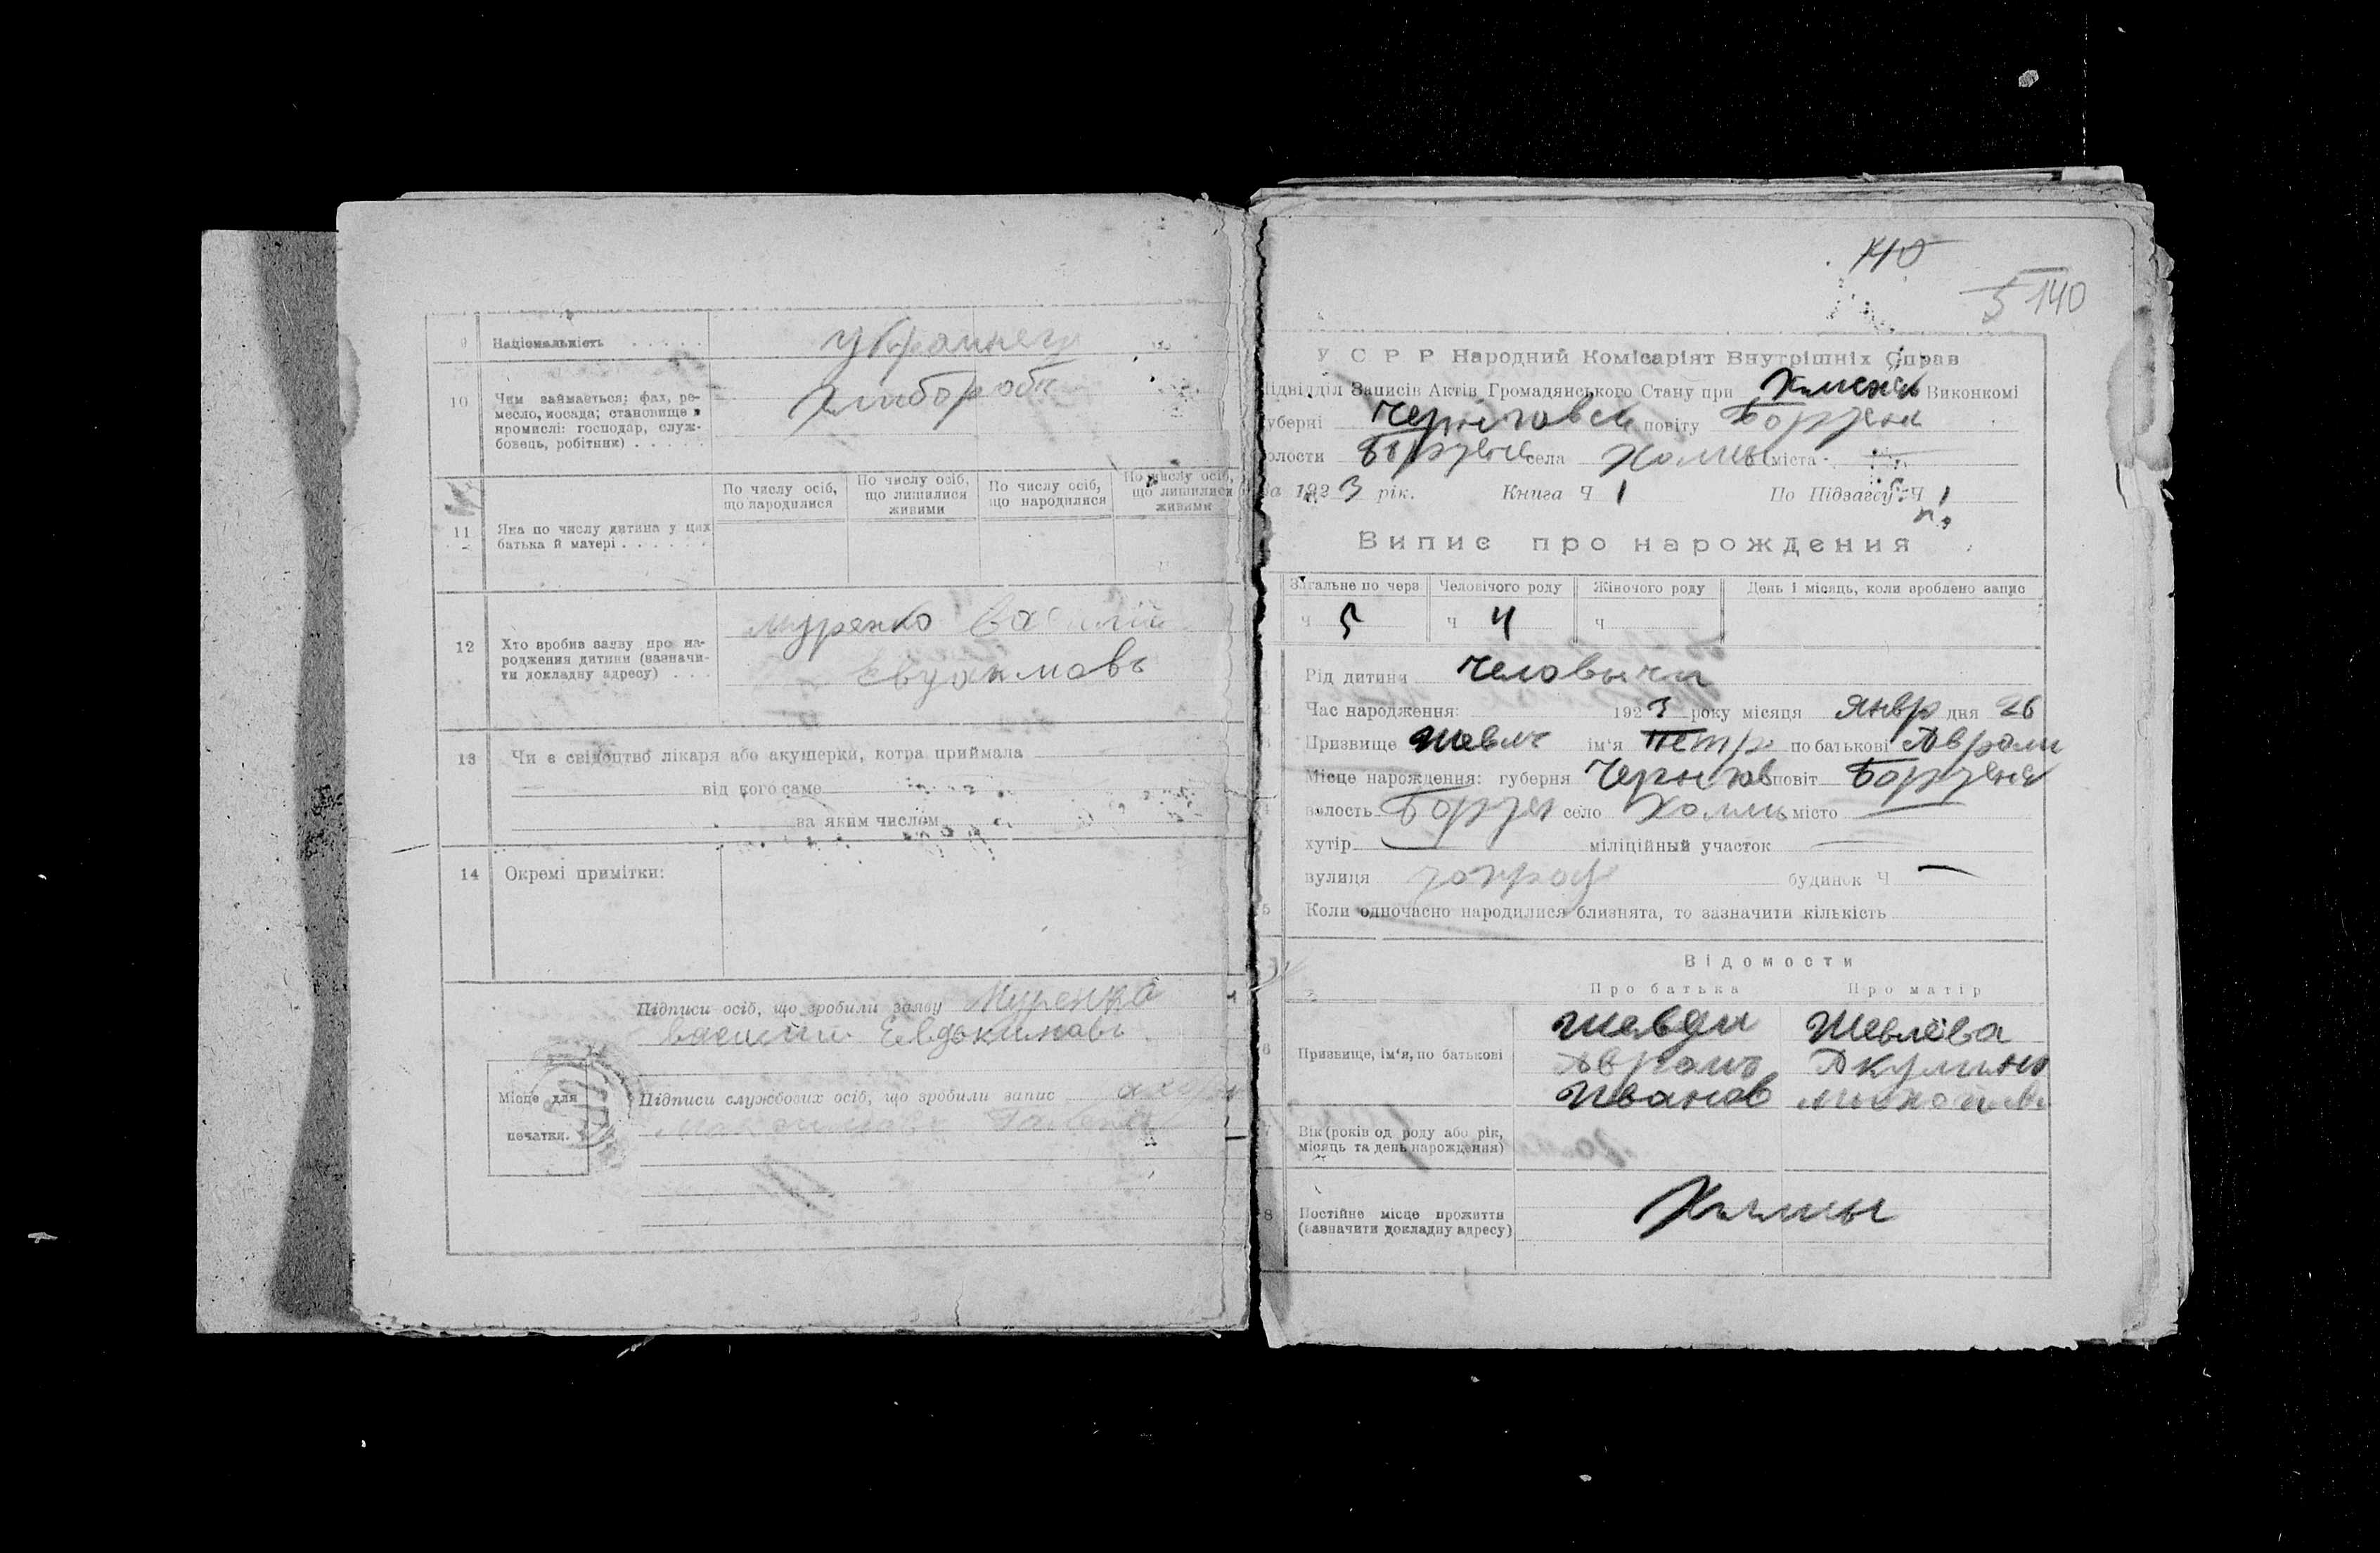 9 Національність . . . . . украинец
10 Чим займається; фах, ре-
месло, посада; становище в
промислі: господар, служ-
бовець, робітник) . . . . . хлибороб
11 Яка по числу дитина у цих
батька й матері . . . . . .
По числу осіб,
що народилися
По числу осіб,
що лишилися
живими
По числу осіб,
що народилися
По числу осіб,
що лишилися
живими
12 Хто зробив заяву про на-
родження дитини (зазначи-
ти докладну адресу) . . .
Муренко Василий
Евдокимовъ
13 Чи є свідоцтво лікаря або акушерки, котра приймала
від кого саме
за яким числом
14 Окремі примітки:
Підписи осіб, що зробили заяву Муренко
Василий Евдокимовъ
Місце для
печатки.
Підписи службових осіб, що зробили запис
140
5 140
У С Р Р Народний Комісаріят Внутрішніх Справ
Підвідділ Записів Актів Громадянського Стану при Виконкомі
губерні Черніговск повіту Борзенск
волости Борзенск села Холмы міста
За 1923 рік. Книга Ч 1 По Підзагсу Ч 1
Випис про нарождения
Загальне по черв
Человічого роду
Жіночого роду
День і місяць, коли зроблено запис
Ч 5
Ч 4
Ч
Рід дитини человичи
Час народження: 1923 року місяця Янвр дня 26
Призвище ім'я Петр по батькові Аврам
Місце нарождення: губерня Чернигов повіт Борзенск
волость Борзен село Холмы місто —
хутір — міліційный участок —
вулиця будинок Ч —
5 Коли одночасно народилися близнята, то зазначити кількість
Відомости
Про батька
Про матір
6 Призвище, ім'я, по батькові
Аврамъ
Иванов
Шевлева
Акулина
7 Вік (років од роду або рік,
місяць та день нарождення)
8 Постійне місце прожиття
(зазначити докладну адресу)
Холмы